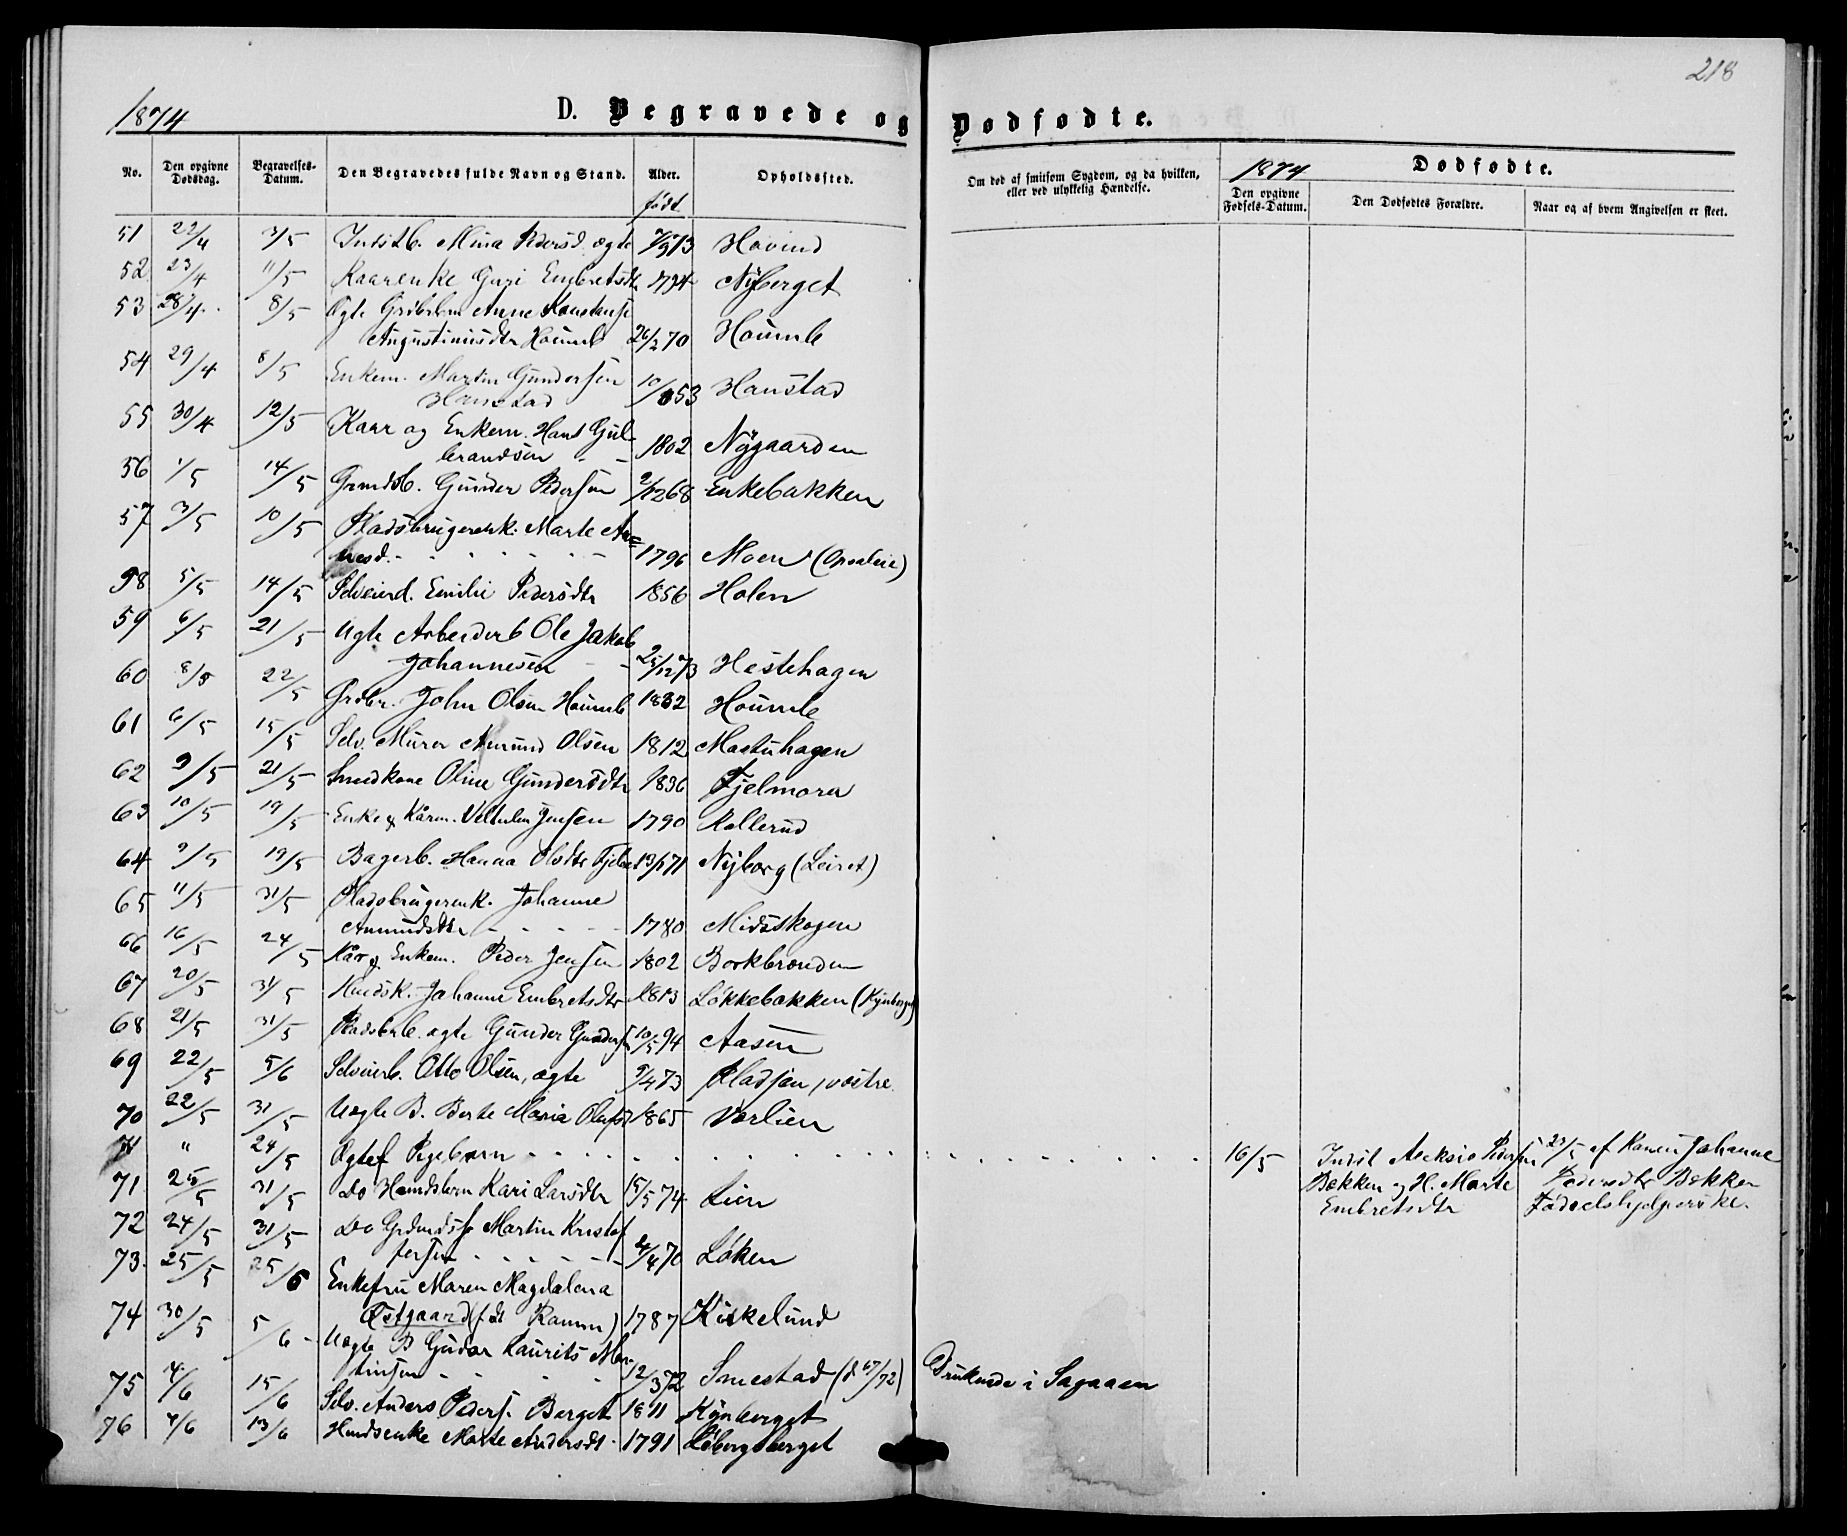 218
1874 D. Begravede og Dødfødte.
No. Den opgivne Dødsdag. Begravelses-Datum. Den Begravedes fulde Navn og Stand. Alder. født Opholdssted. Om død af smitsom Sygdom, og da hvilken, eller ved ulykkelig Hændelse. 1874 Dødfødte. Den opgivne Fødsels-Datum. Den Dødfødtes Forældre. Naar og af hvem Angivelsen er skeet.
51 22/4 3/5 Indstb. Mina Pedersd. ægte 7/9 73 Hovind
52 23/4 11/5 Kaarenke Guri Embretsdtr 1794 Nyberget
53 28/4 8/5 Ægte Grdbrbarn Anne Konstanse
Augustinusdtr Houmb 26/2 70 Houmb
54 29/4 8/5 Enkem. Martin Gundersen
Hanstad 10/ 53 Hanstad
55 30/4 12/5 Kaar og Enkem. Hans Gul-
brandsen 1802 Nygaarden
56 1/5 14/5 Grmdsb. Gunder Pedersen 9/12 68 Enkebakken
57 3/5 10/5 Pladsbrugerenk. Marte Ar=
nesd. 1796 Moen (Opsaleie)
58 5/5 14/5 Selveierd. Emilie Pedersdtr 1856 Holen
59 6/5 21/5 Uægte Arbeiderb Ole Jakob
Johannesen 25/12 73 Hestehagen
60 8/5 22/5 Grdbr. John Olsen Houmb 1832 Houmb
61 6/5 15/5 Selv. Murer Amund Olsen 1812 Mastuhagen
62 9/5 21/5 Smedkone Oline Gundersdtr 1836 Fjelmora
63 10/5 19/5 Enke & Kårm. Vilhelm Jensen 1790 Rollerud
64 9/5 19/5 Bagerb. Hanna Olsdtr 13/1 71 Nyborg (Leiret)
65 11/5 31/5 Pladsbrugerenk. Johanne
Amundsdtr 1780 Midtskogen
66 16/5 24/5 Kår & Enkem. Peder Jensen 1802 Borkbronden
67 20/5 31/5 Hmdsk. Johanne Embretsdtr 1813 Løkkebakken (Kynberget)
68 21/5 31/5 Pladsbrb. ægte Gunder Gunders 10/5 94 Aasen
69 22/5 5/6 Selveierb. Otto Olsen, ægte 9/4 73 Pladsen, vestre
70 22/5 31/5 Uægte B. Berte Maria Olufsd 1865 Vorlien
71 " 24/5 Ægtef Pigebarn 16/5 Indst Aeksis Pedersen 23/5 af Konen Johanne
Bækken og H. Marte Pedersdtr Bækken
Embretsdtr Fødselshjelperske.
71. 25/5 31/5 Do Hmdsbarn Kari Larsdtr 15/5 74 Lien
72 24/5 31/5 Do Grdmdss Martin Kristof
fersen 4/4 70 Løken
73. 25/5 25/6 Enkefru Maren Magdalena
Østgaard (født Ramm) 1787 Kirkelund
74 30/5 5/6 Uægte B Gudar Laurits Mar-
tinsen 12/3 72 Smestad (d 67/72) Druknede i Sagaaen
75 4/6 15/6 Selv. Anders Peders. Berget 1811 Kynberget
76 4/6 13/6 Hmdsenke Marte Andersdt. 1791 Løbergsberget